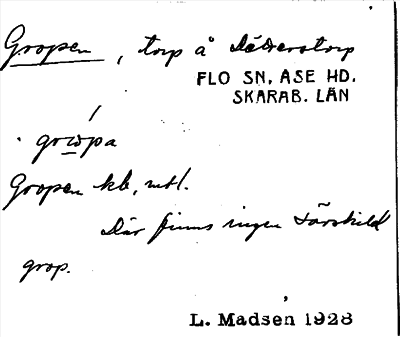 Gropen, torp å
FLO SN, ASE HD.
SKARAB. LÄN
Gropen kb, mtl.
Där finns ingen särskild
grop.
L. Madsen 1928